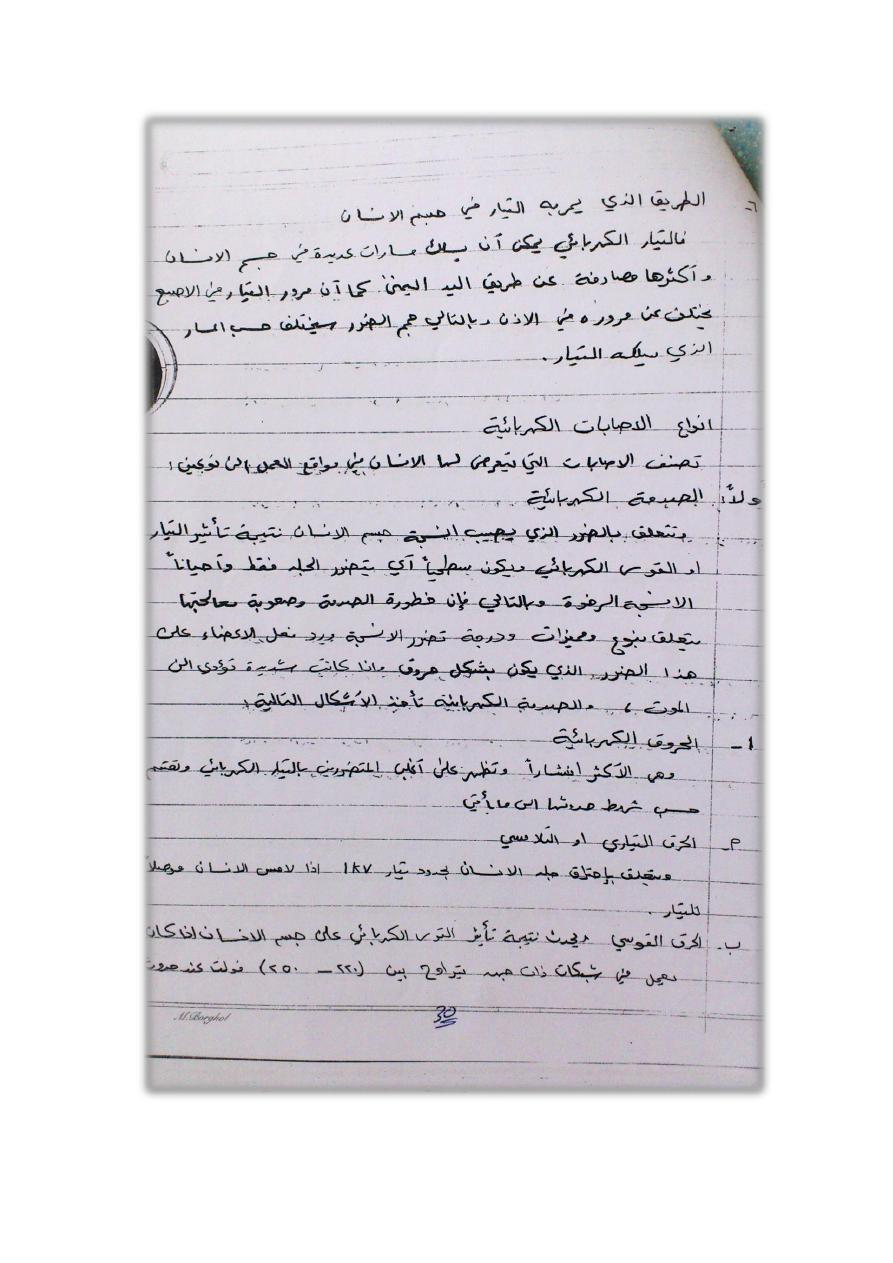 ٦- الطريق الذي يمر به التيار في جسم الانسان
فالتيار الكهربائي يمكن أن يسلك مسارات عديدة في جسم الانسان
وأكثرها مصادفة عن طريق اليد اليمنى كما أن مرور التيار في الاصبع
يختلف عن مروره في الاذن وبالتالي حجم الضرر سيختلف حسب المسار
الذي يسلكه التيار.
انواع الاصابات الكهربائية
تصنف الاصابات التي يتعرض لها الانسان في مواقع العمل إلى نوعين:
ولاً: الصدمة الكهربائية
وتتعلق بالضرر الذي يصيب انسجة جسم الانسان نتيجة تأثير التيار
او القوس الكهربائي ويكون سطحياً أي يتضرر الجلد فقط وأحياناً
الانسجة الرخوة وبالتالي فإن خطورة الصدمة وصعوبة معالجتها
يتعلق بنوع ومميزات ودرجة تضرر الانسجة ورد فعل الاعضاء على
هذا الضرر الذي يكون بشكل حروق واذا كانت شديدة تؤدي الى
الموت، والصدمة الكهربائية تأخذ الأشكال التالية:
1- الحروق الكهربائية
وهي الأكثر انتشاراً وتظهر على أغلب المتضررين بالتيار الكهربائي وتقسم
حسب شروط حدوثها الى ما يأتي
م- الحرق التياري او التلامسي
ويتعلق بإحتراق جلد الانسان بحدود تيار 1kv اذا لامس الانسان موصلاً
للتيار.
ب- الحرق القوسي ويحدث نتيجة تأثير القوس الكهربائي على جسم الانسان اذا كان
يعمل في شبكات ذات جهد يتراوح بين (٢٢٠ – ٢٥٠) فولت عند حدوث
M.Borghol
30